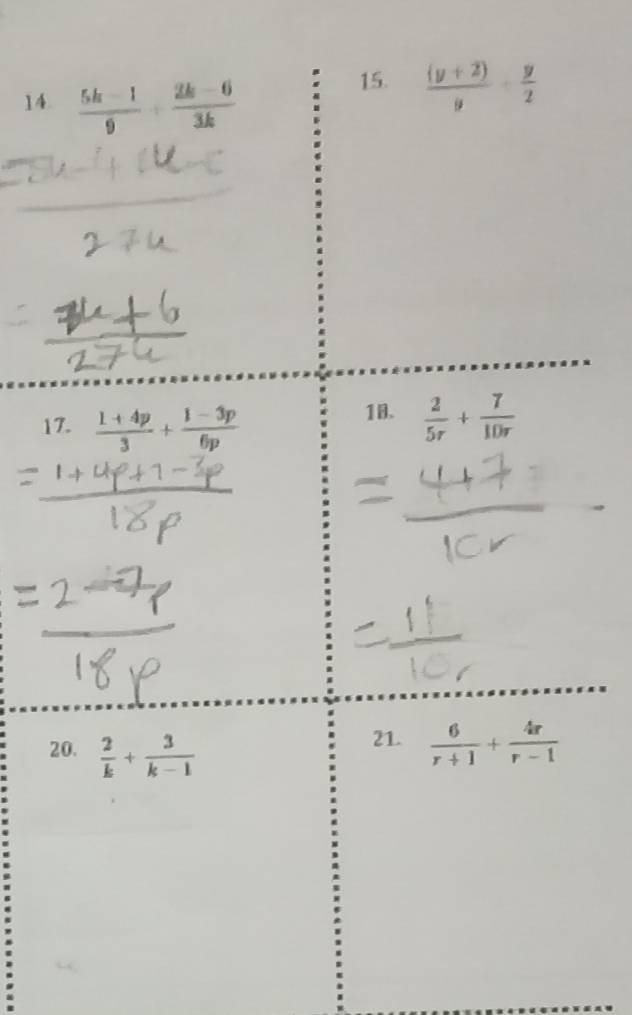 14. (5k - 1)/9 + (2k - 6)/3k
27k
= 7k + 6
27k
15. (y + 2)/y - y/2
17. (1 + 4p)/3 + (1 - 3p)/6p
= 1 + 4p + 1 - 3p
18p
= 2 - 7p
18p
18. 2/5r + 7/10r
= 4 + 7
10r
= 11
10r
20. 2/k + 3/(k - 1)
21. 6/(r + 1) + 4r/(r - 1)